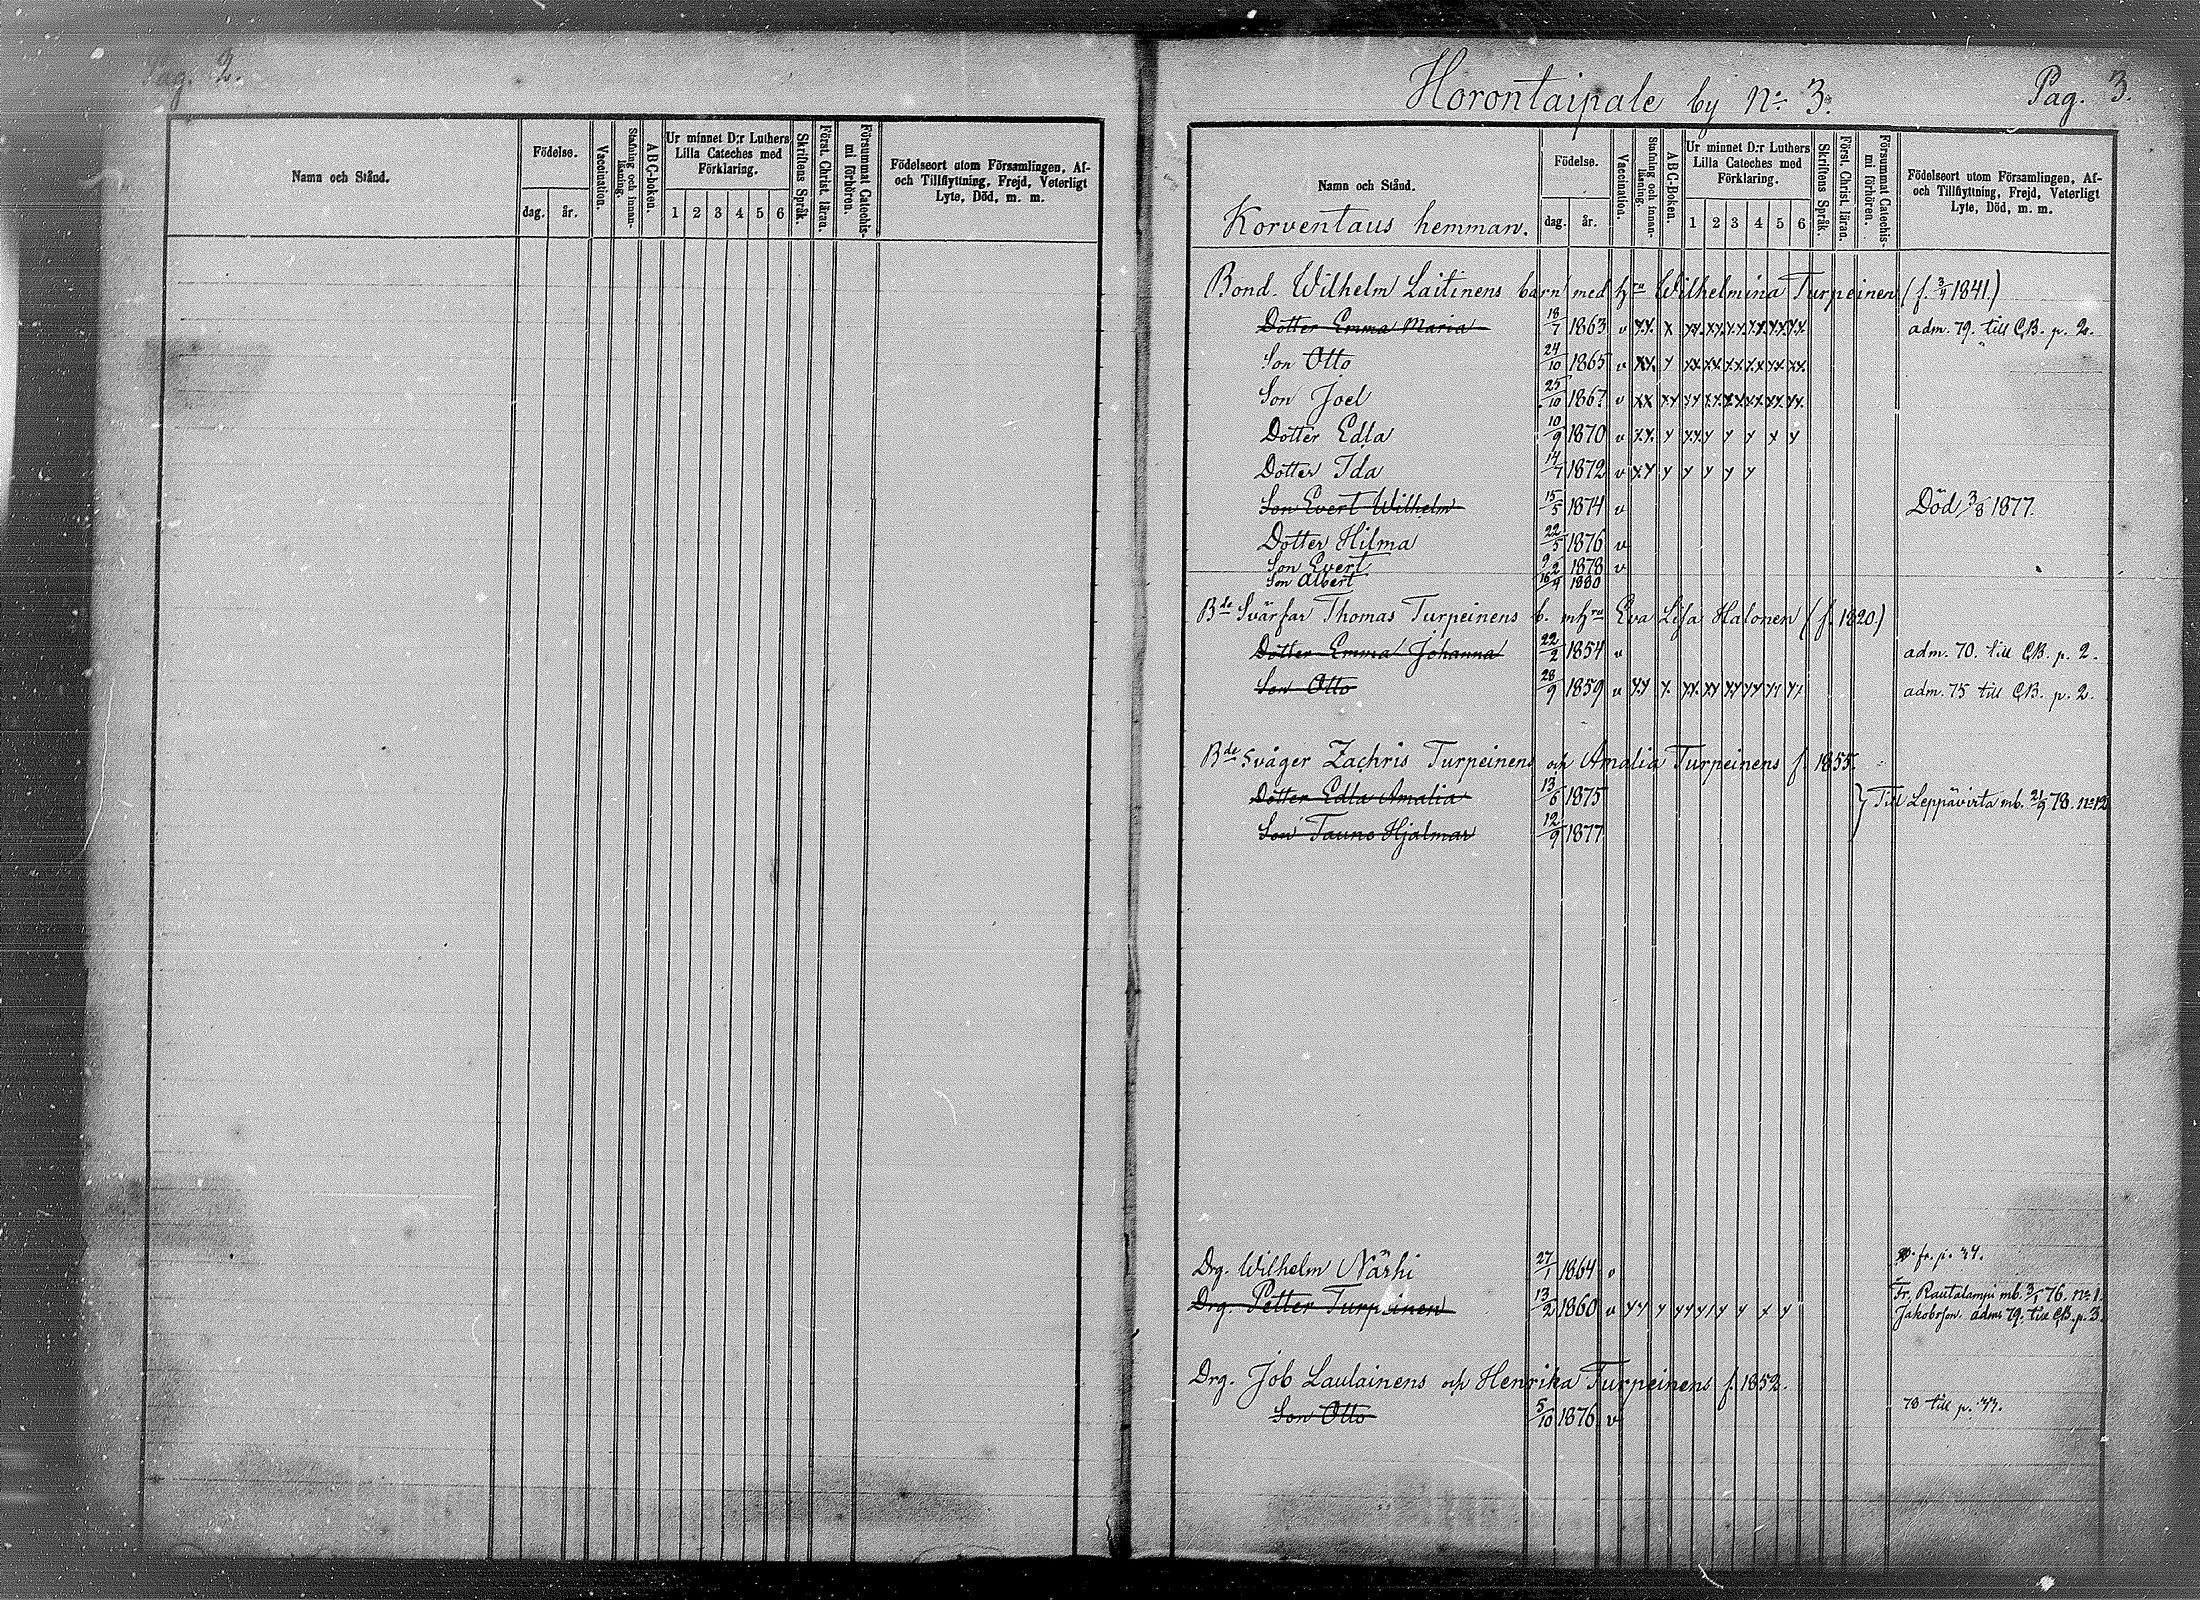 Pag. 2.
Namn och Stånd.
Födelse.
dag.
år.
Vaccination.
Stafning och innan-
läsning.
ABC-boken.
Ur minnet D:r Luthers
Lilla Cateches med
Förklaring.
1 2 3 4 5 6
Skriftens Språk.
Först. Christ. läran.
Försummat Catechis-
mi förhören.
Födelseort utom Församlingen, Af-
och Tillflyttning, Frejd, Veterligt
Lyte, Död, m. m.
Horontaipale by No 3.
Pag. 3.
Namn och Stånd.
Korventaus hemman.
Födelse.
dag.
år.
Vaccination.
Stafning och innan-
läsning.
ABC-Boken.
Ur minnet D:r Luthers
Lilla Cateches med
Förklaring.
1 2 3 4 5 6
Skriftens Språk.
Först. Christ. läran.
Försummat Catechis-
mi förhören.
Födelseort utom Församlingen, Af-
och Tillflyttning, Frejd, Veterligt
Lyte, Död, m. m.
Bond. Wilhelm Laitinens barn med h:ru Wilhelmina Turpeinen (f. 3/4 1841.)
Dotter Emma Maria 18/7 1863 v adm. 79. till CB. p. 2.
Son Otto 24/10 1865 v
Son Joel 25/10 1867 v
Dotter Edla 10/9 1870 v
Dotter Ida 14/7 1872 v
Son Evert Wilhelm 15/5 1874 v Död 3/8 1877.
Dotter Hilma 22/5 1876 v
Son Evert 9/2 1878 v
Son Albert 16/9 1880
B:de Svärfar Thomas Turpeinens b. m h:ru Eva Lisa Halonen (f. 1820.)
Dotter Emma Johanna 22/2 1854 v adm. 70. till CB. p. 2.
Son Otto 28/9 1859 v adm. 75 till CB. p. 2.
B:de Svåger Zachris Turpeinens och Amalia Turpeinens f. 1855.
Dotter Edla Amalia 13/6 1875 } Till Leppävirta mb. 21/9 78. no 12
Son Tauno Hjalmar 12/9 1877
Drg. Wilhelm Närhi 27/1 1864 v fr. p. 34.
Drg. Petter Turpeinen 13/2 1860 v Fr. Rautalampi mb. 3/1 76. no 1.
Jakobsson. adm 79. till CB. p. 3.
Drg. Job Laulainens och Henrika Turpeinens f. 1852.
Son Otto 5/10 1876 v 78 till p. 33.